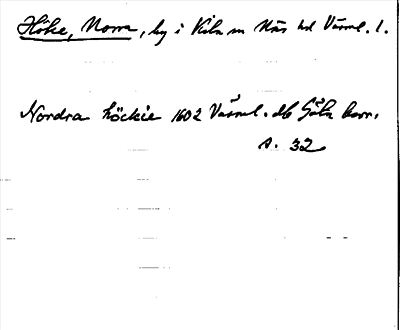 Höke, Norra, by i Kila sn Näs hd Värml. l.
Nordra höckie 1602 Värml. db Göta hovr.
s. 32